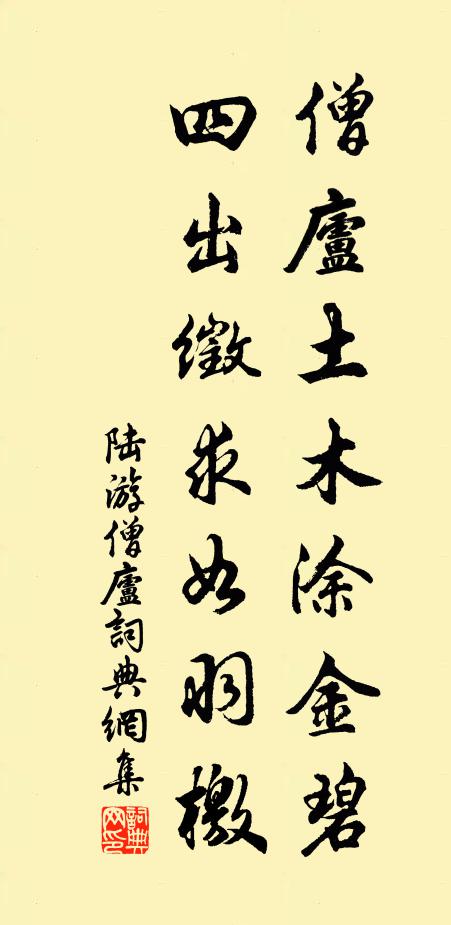 僧廬土木涂金碧
四出徵求如羽檄
陸游僧廬詞典網集
詞典网印